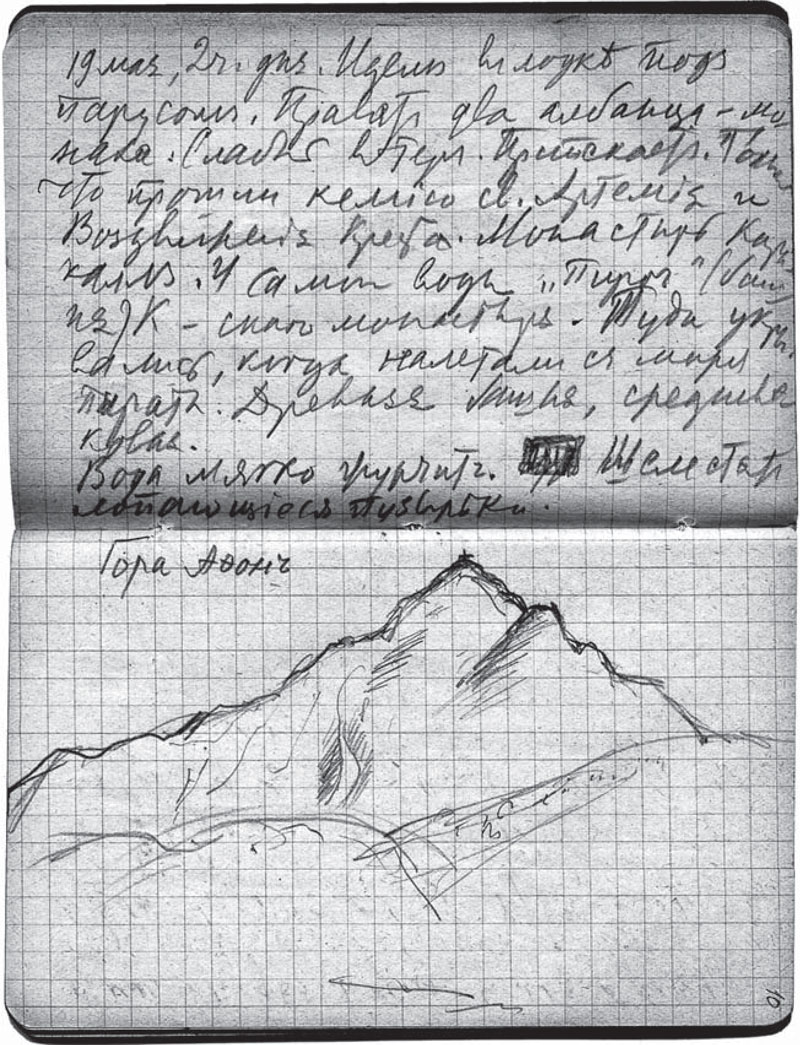 19 мая, 2 ч. дня. Идемъ въ лодкѣ подъ
парусомъ. Правятъ два албанца – мо
наха. Слабый вѣтеръ. Припекаетъ. Только
что прошли келлію св. Артемія и
Воздвиженія Креста. Монастырь Кара
каллъ. У самой воды „Пиргъ" (баш
ня) К – скаго монастыря. Туда укры
вались, когда налетали съ моря
пираты. Древняя башня, средневѣ
ковая.
Вода мягко журчитъ. Шелестятъ
лопающіеся пузырьки.
Гора Аѳонъ
10